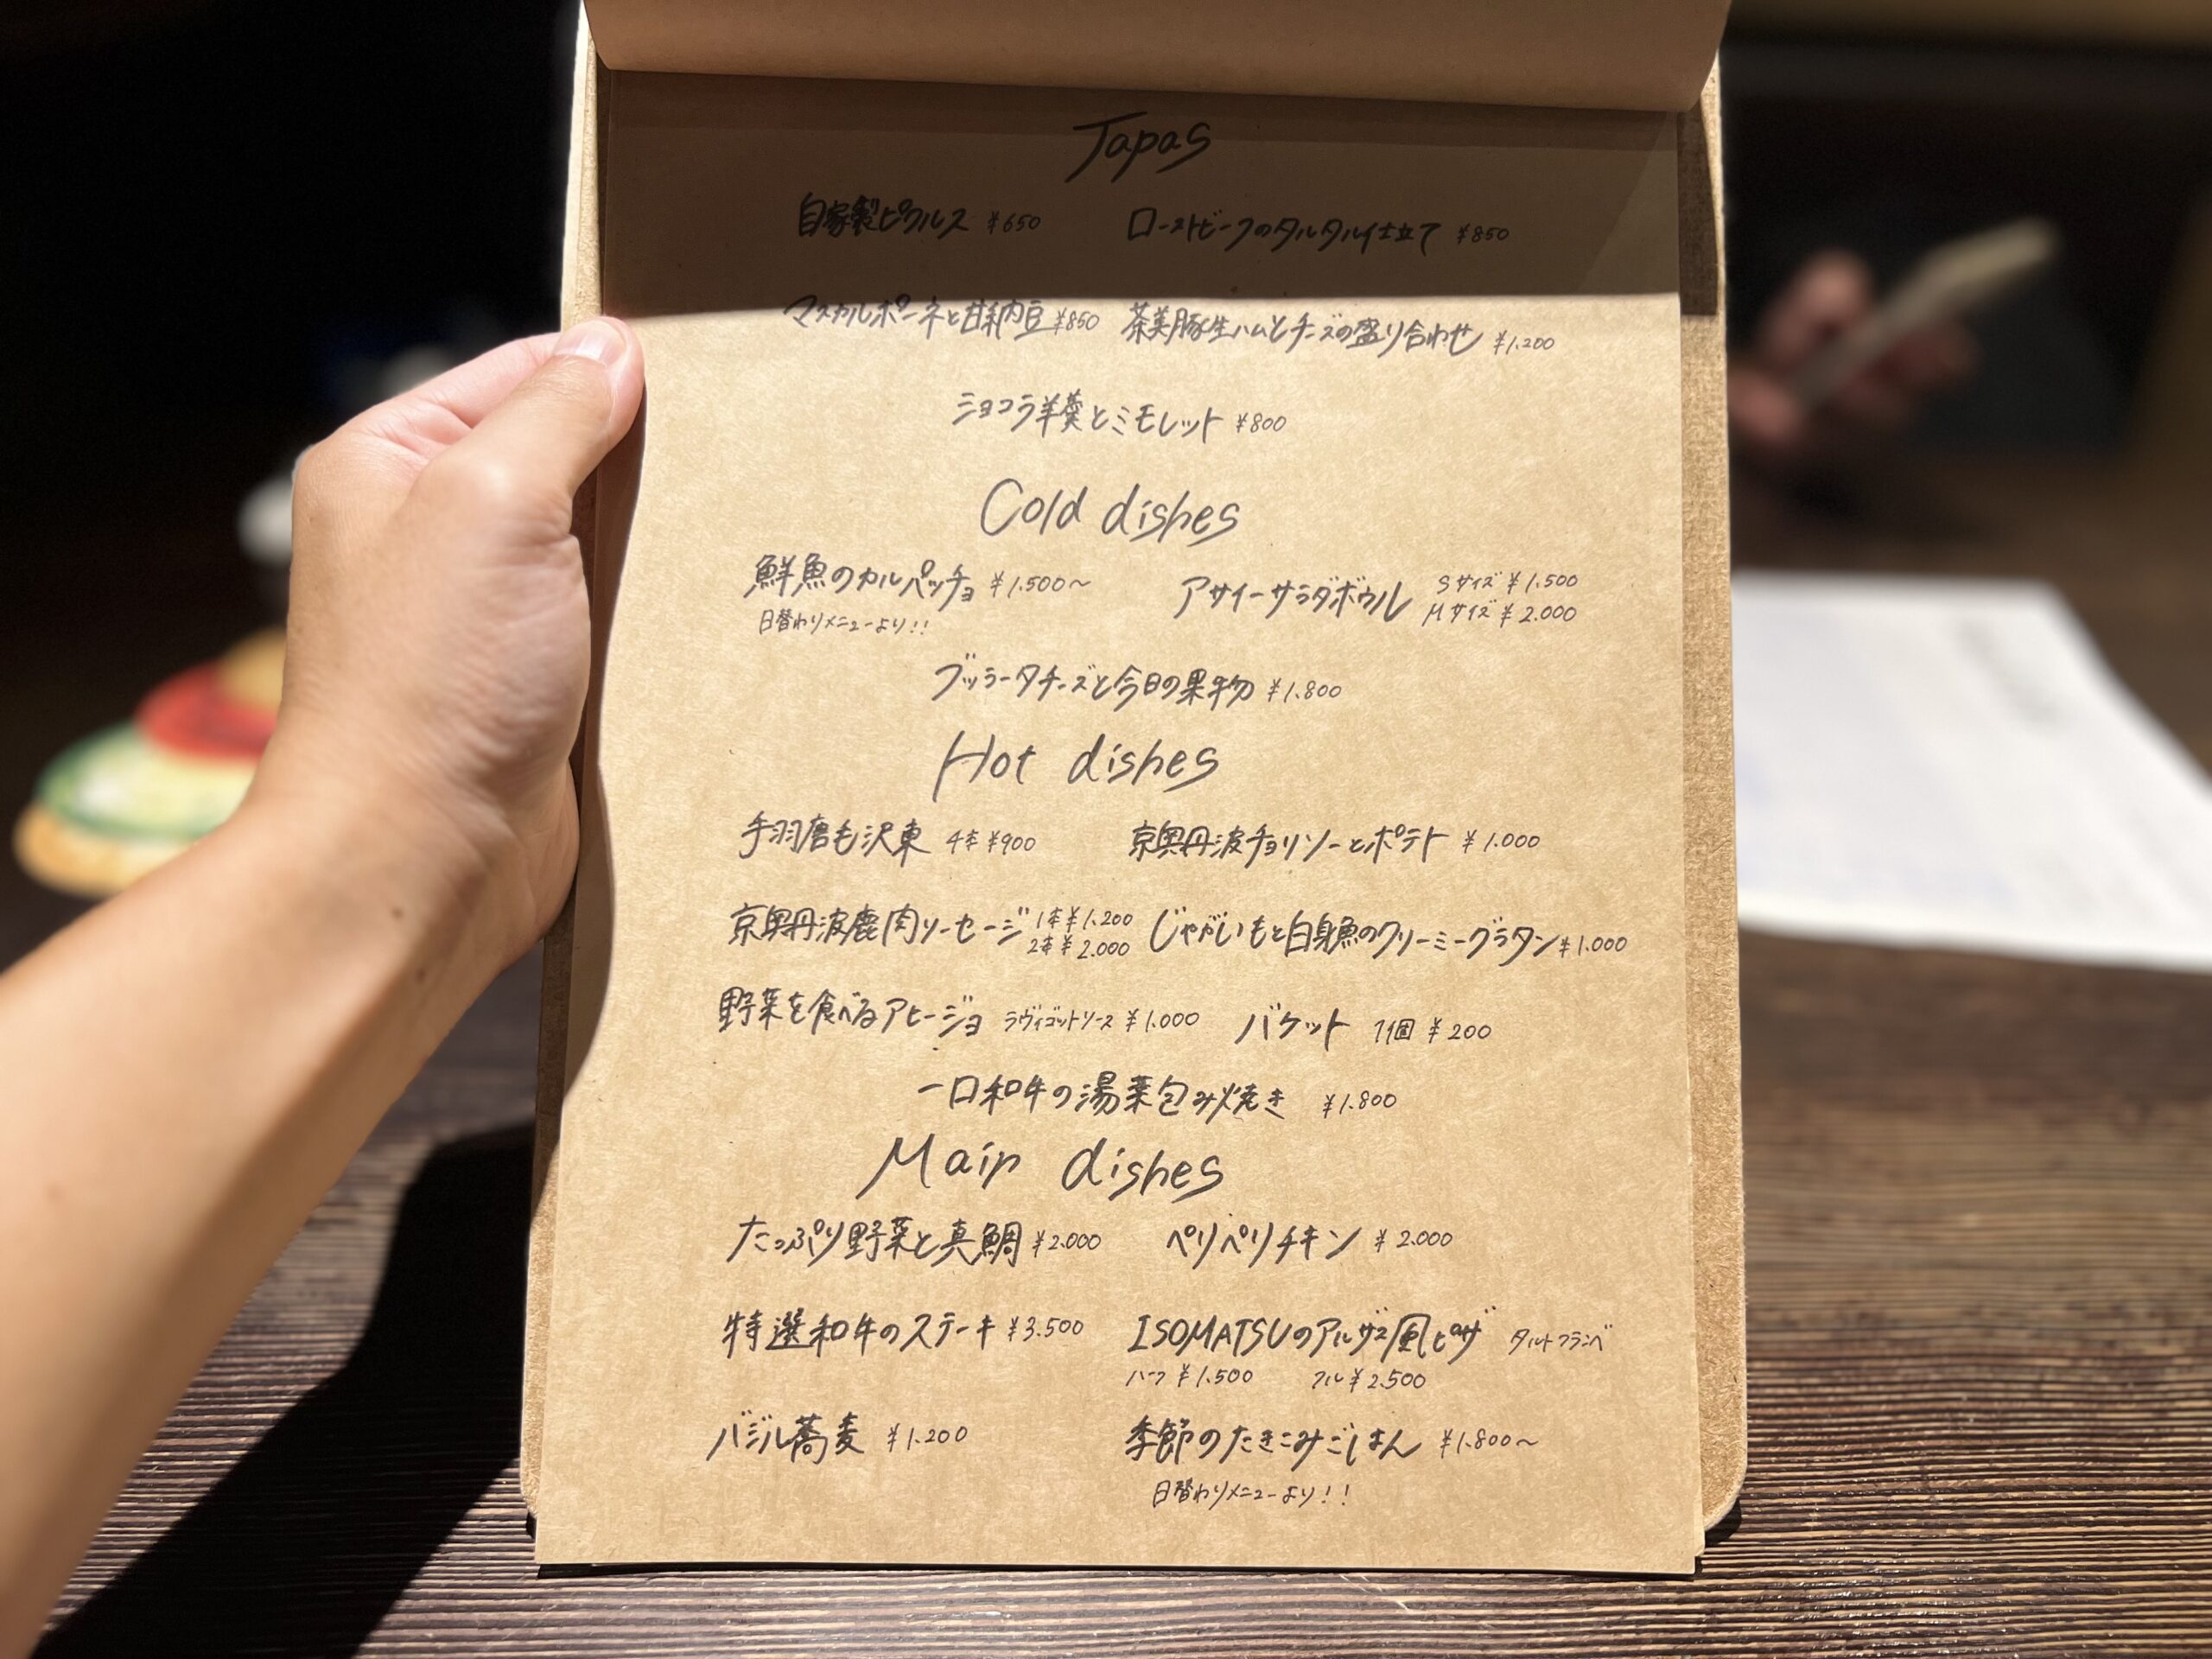 Tapas
自家製ピクルス ¥650 ローストビーフのタルタル仕立て ¥850
マスカルポーネと甘納豆 ¥850 茶美豚生ハムとチーズの盛り合わせ ¥1.200
ショコラ羊羹とミモレット ¥800
Cold dishes
鮮魚のカルパッチョ ¥1.500〜 アサイーサラダボウル Sサイズ ¥1.500
日替わりメニューより!! Mサイズ ¥2.000
ブッラータチーズと今日の果物 ¥1.800
Hot dishes
手羽唐毛沢東 4本 ¥900 京奥丹波チョリソーとポテト ¥1.000
京奥丹波鹿肉ソーセージ 1本¥1.200 じゃがいもと白身魚のクリーミーグラタン ¥1.000
2本¥2.000
野菜を食べるアヒージョ ラヴィゴットソース ¥1.000 バケット 1個 ¥200
一口和牛の湯葉包み焼き ¥1.800
Main dishes
たっぷり野菜と真鯛 ¥2.000 ペリペリチキン ¥2.000
特選和牛のステーキ ¥3.500 ISOMATSUのアルザス風ピザ タルトフランベ
ハーフ ¥1.500 フル ¥2.500
バジル蕎麦 ¥1.200 季節のたきこみごはん ¥1.800〜
日替わりメニューより!!